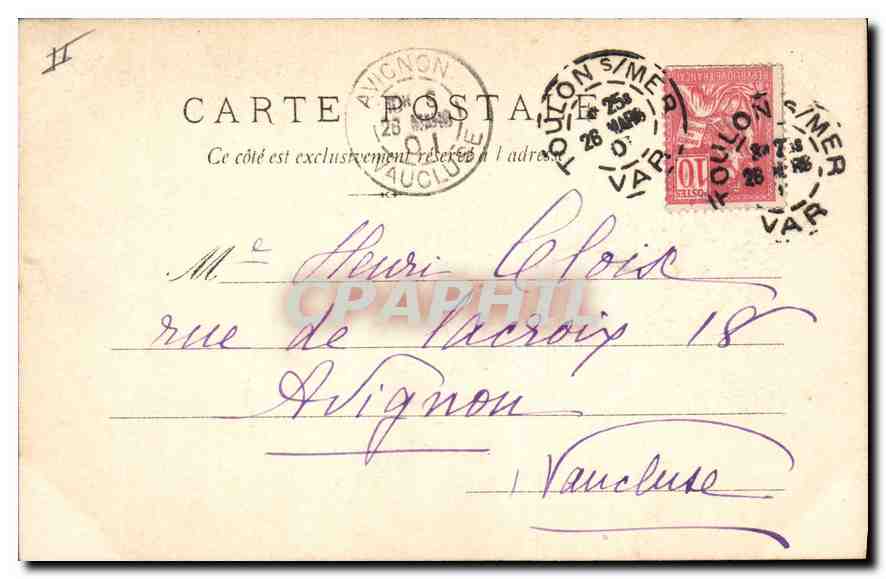 II
AVIGNON
26
01
VAUCLUSE
CARTE POSTALE
Ce côté est exclusivement réservé à l'adresse
TOULON S/MER
26 MARS
VAR
REPUBLIQUE FRANCAISE
10
POSTES
TOULON S/MER
26
VAR
Me Henri Cloix
CPAPHIL
rue de lacroix 18
Avignon
Vaucluse